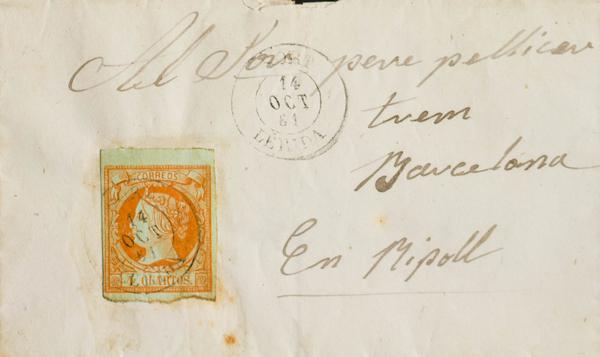 Al Sor pere pellicer
trem
Barcelona
En Ripoll
SORT
14
OCT
61
LERIDA
CORREOS
14
OCT
CUARTOS.